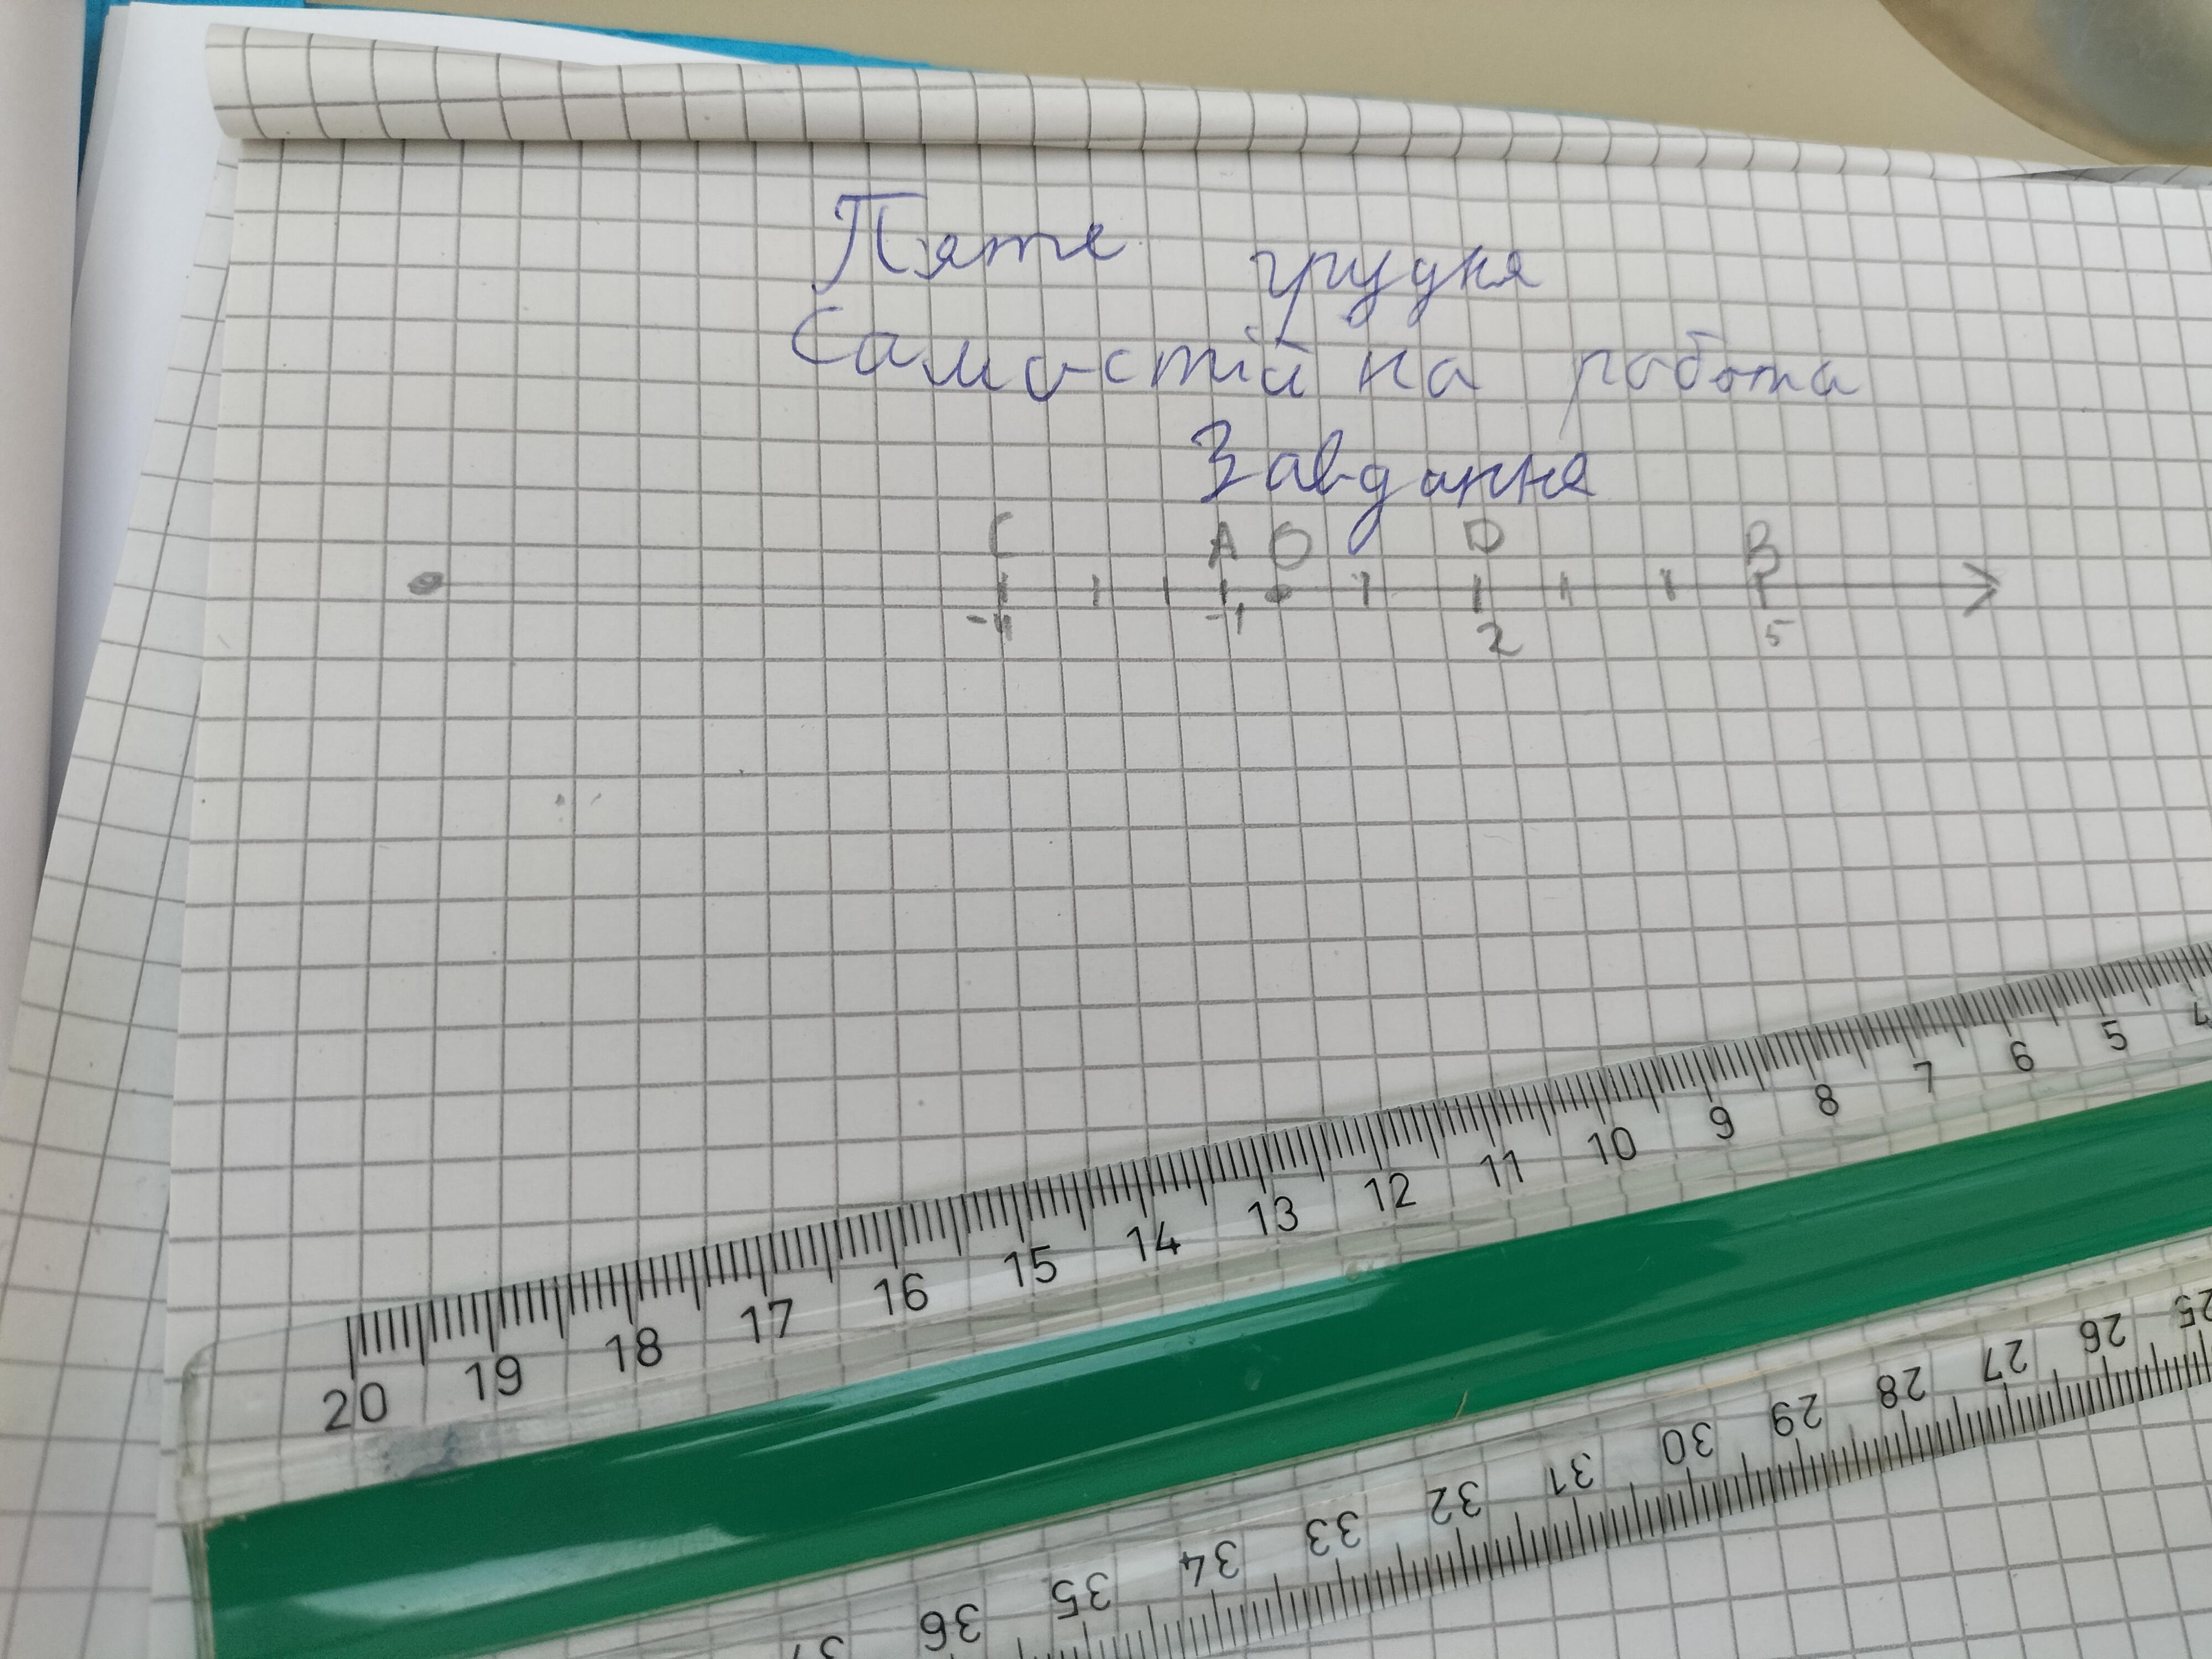 Пяте грудня
Самостійна робота
Завдання
C A O D B
-4 -1 2 5
20 19 18 17 16 15 14 13 12 11 10 9 8 7 6 5 4
37 36 35 34 33 32 31 30 29 28 27 26 25